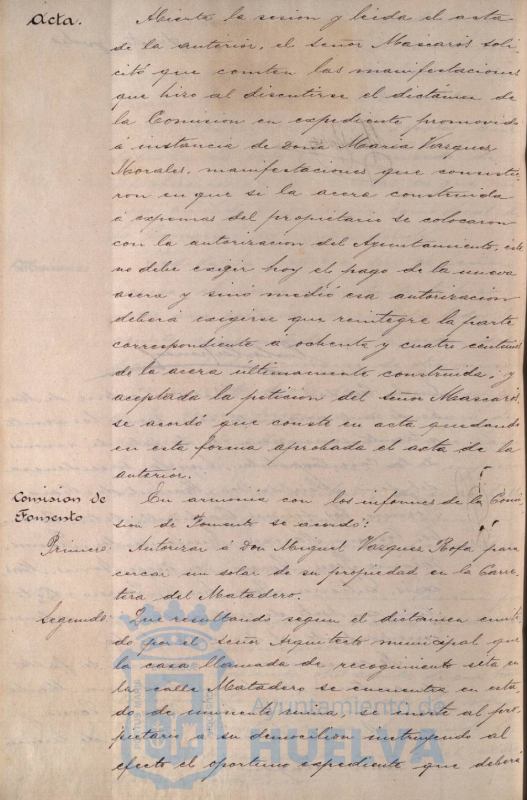 Acta.
Abierta la sesion y leida el acta
de la anterior, el señor Mascarós soli
citó que consten las manifestaciones
que hizo al discutirse el dictámen de
la Comision en expediente promovido
á instancia de Doña María Vazquez
Morales, manifestaciones que consistie
ron en que si la acera construida
á expensas del propietario se colocaron
con la autorizacion del Ayuntamiento, este
no debe exigir hoy el pago de la nueva
acera y sinó medió esa autorizacion
deberá exigirse que reintegre la parte
correspondiente á ochenta y cuatre céntimos
de la acera últimamente construida; y
aceptada la peticion del señor Mascarós
se acordó que conste en acta quedando
en esta forma aprobada el acta de la
anterior.
Comision de
Fomento
En armonia con los informes de la Comi
sion de Fomento se acordó:
Primero: Autorizar á Don Miguel Vazquez Rofa para
cercar un solar de su propiedad en la Carre
tera del Matadero.
Segundo: Que resultando segun el dictámen emiti
do por el señor Arquitecto municipal que
la casa llamada de recogimiento sita en
la calle Matadero se encuentra en esta
do de inminente ruina, se invite al pro
pietario á su demolicion instruyendo al
efecto el oportuno expediente que deberá
Ayuntamiento de
HUELVA